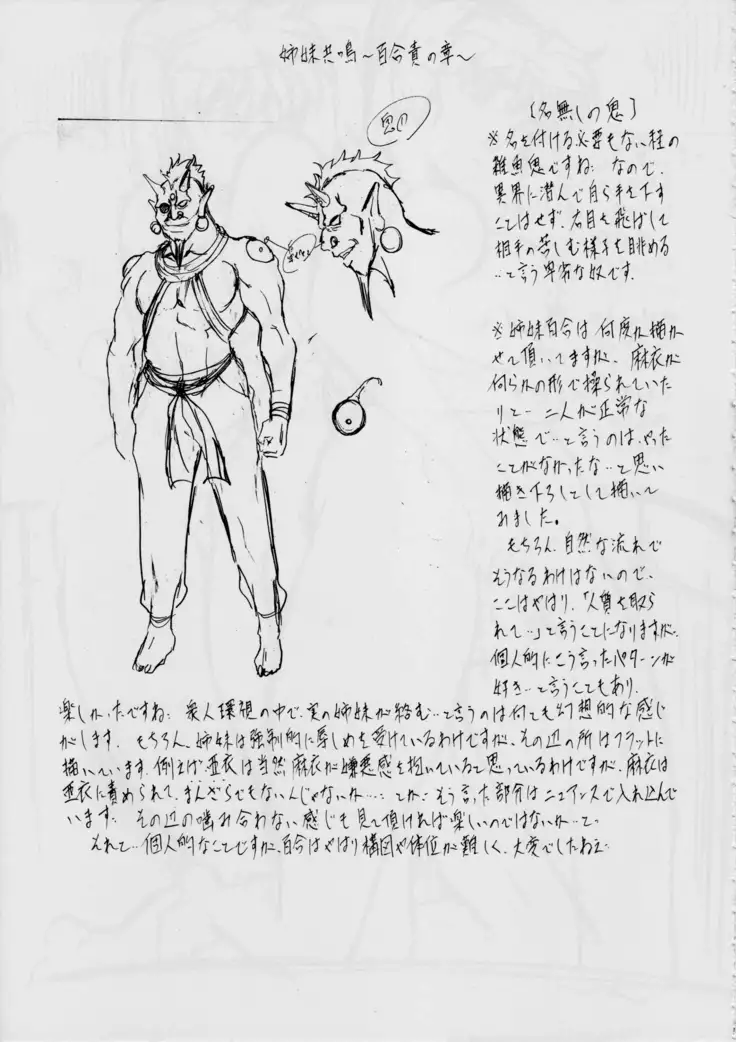 姉妹共鳴～百合責の章～
【名無しの鬼】
※名を付ける必要もない程の
雑魚鬼ですね… なので、
異界に潜んで自ら手を下す
ことはせず、右目を飛ばして
相手の苦しむ様子を眺める
…と言う卑劣な奴です。
※姉妹百合は何度か描か
せて頂いてますが、麻衣が
何らかの形で操られていた
りと… 二人が正常な
状態で…と言うのは、やった
ことがなかったな…と思い
描き下ろしとして描いて
みました。
もちろん、自然な流れで
そうなるわけはないので、
ここはやはり、「人質を取ら
れて…」と言うことになりますが…
個人的にこう言ったパターンが
好き…と言うこともあり、
楽しかったですね… 衆人環視の中で、実の姉妹が絡む…と言うのは何とも幻想的な感じ
がします。 もちろん、姉妹は強制的に辱しめを受けているわけですが、その辺の所はフラットに
描いています。例えば、亜衣は当然麻衣が嫌悪感を抱いていると思っているわけですが、麻衣は
亜衣に責められて、まんざらでもないんじゃないか…… とか… そう言った部分はニュアンスで入れ込んで
います… その辺の噛み合わない感じも見て頂ければ楽しいのではないか…と。
それと… 個人的なことですが、百合はやはり構図や体位が難しく、大変でしたねえ…